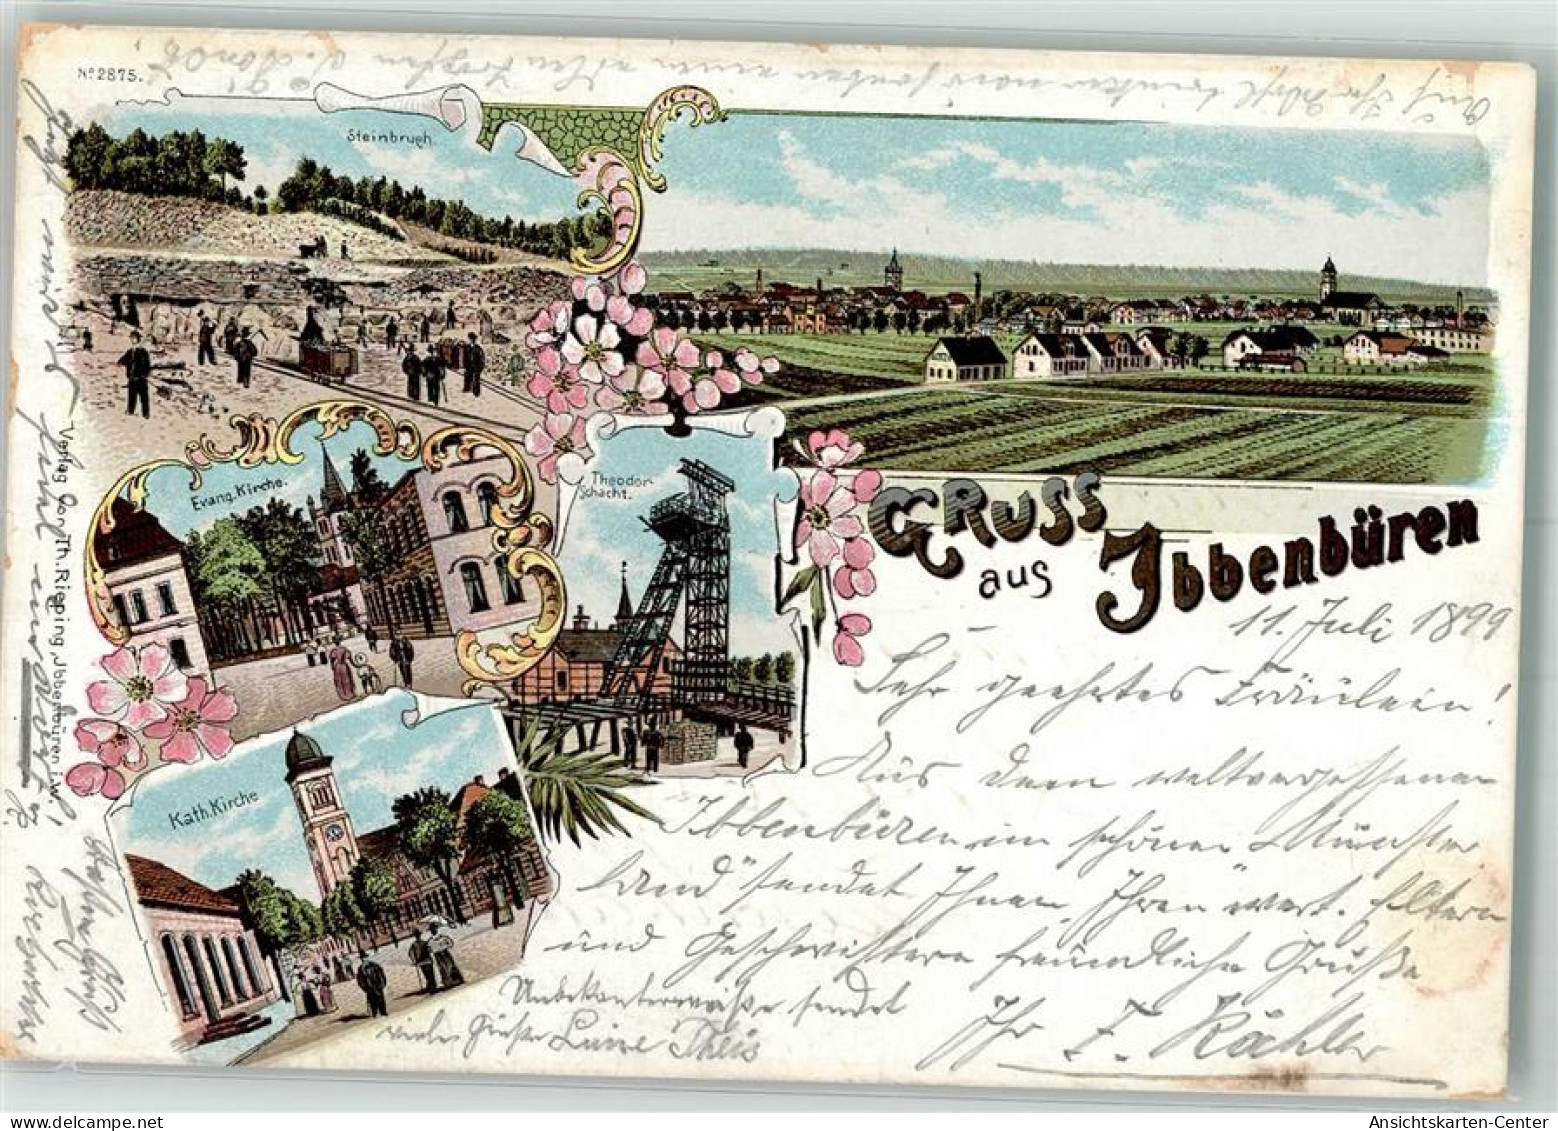 No 2875.
Auf Ihr Wohl trinken
Steinbruch.
Evang. Kirche.
Theodor-
Schacht.
Kath. Kirche
Verlag von Th. Riepping, Jbbenbüren i.W.
GRUSS
aus Jbbenbüren
11. Juli 1899
Sehr geehrtes Fräulein!
Aus dem weltvergessenen
Ibbenbüren im schönen „Münster
land“ sendet Ihnen, Ihren wert. Eltern
und Geschwistern freundliche Grüße
Ihr F. Köhler
Unbekannterweise sendet
viele Grüße Luise Theis
Ansichtskarten-Center